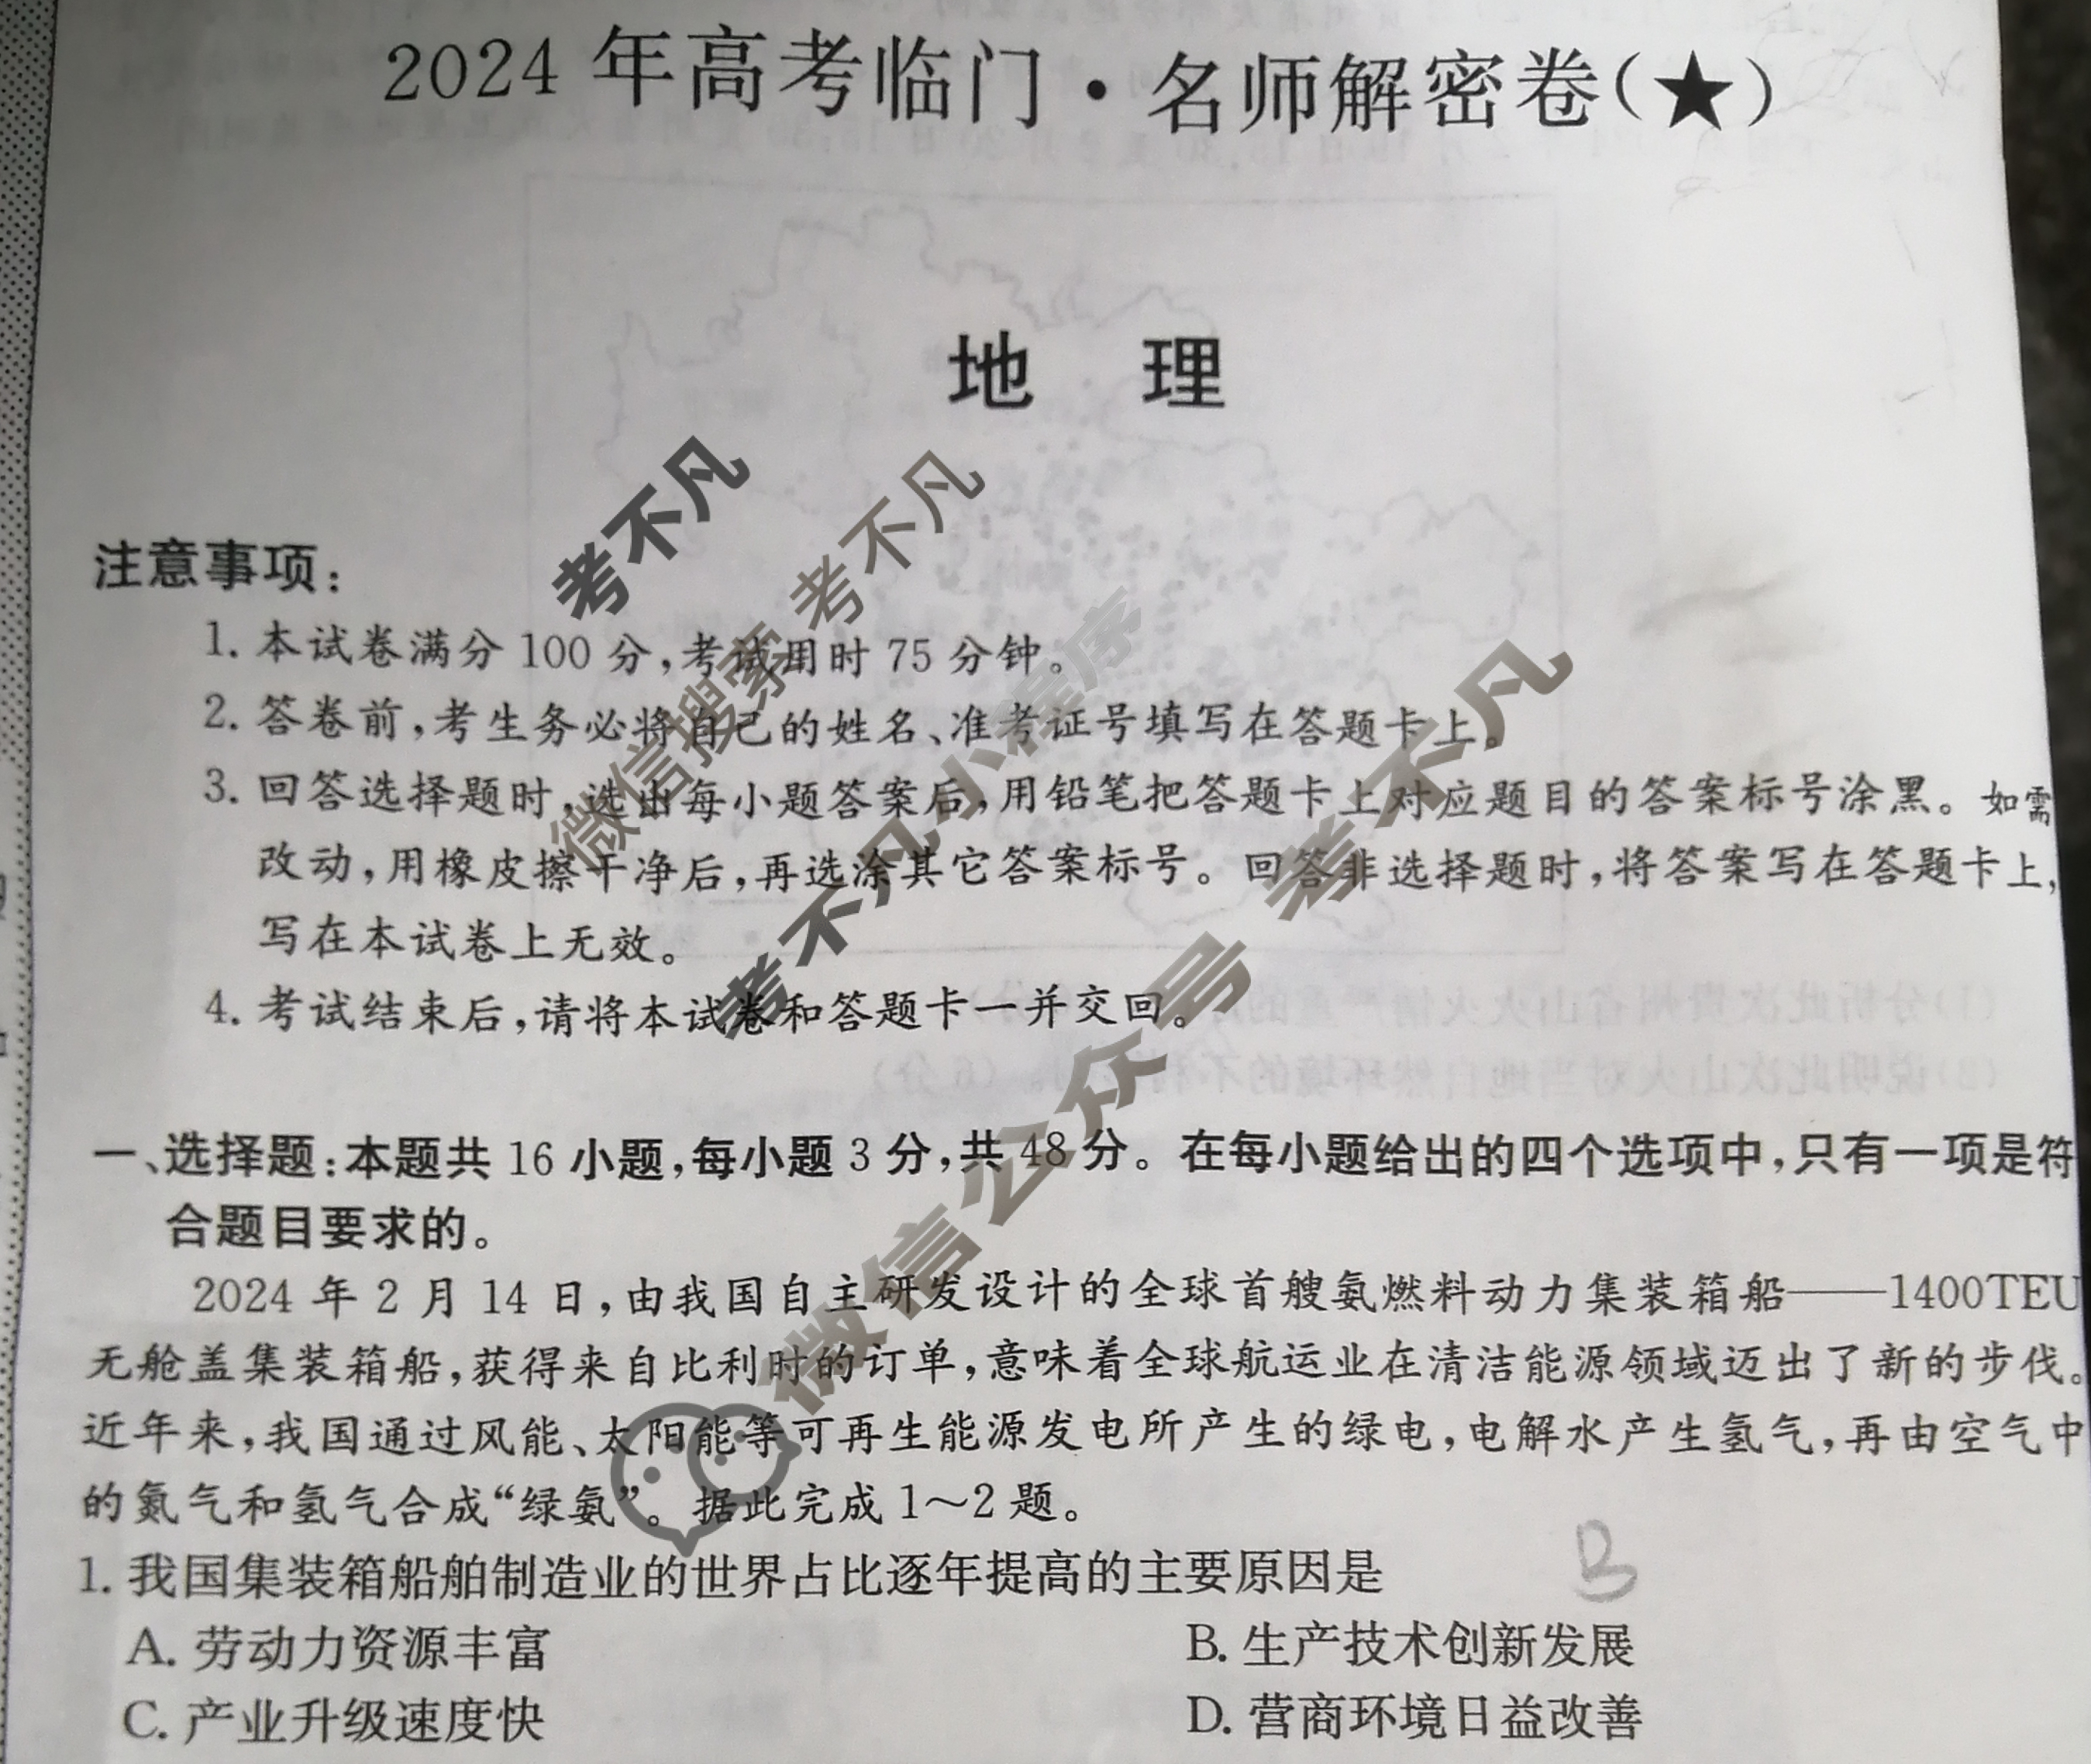 2024 年高考临门·名师解密卷(★)
地 理
注意事项:
1. 本试卷满分 100 分,考试用时 75 分钟。
2. 答卷前,考生务必将自己的姓名、准考证号填写在答题卡上。
3. 回答选择题时,选出每小题答案后,用铅笔把答题卡上对应题目的答案标号涂黑。如需
改动,用橡皮擦干净后,再选涂其它答案标号。回答非选择题时,将答案写在答题卡上,
写在本试卷上无效。
4. 考试结束后,请将本试卷和答题卡一并交回。
一、选择题:本题共 16 小题,每小题 3 分,共 48 分。在每小题给出的四个选项中,只有一项是符
合题目要求的。
2024 年 2 月 14 日,由我国自主研发设计的全球首艘氨燃料动力集装箱船——1400TEU
无舱盖集装箱船,获得来自比利时的订单,意味着全球航运业在清洁能源领域迈出了新的步伐。
近年来,我国通过风能、太阳能等可再生能源发电所产生的绿电,电解水产生氢气,再由空气中
的氮气和氢气合成“绿氨”。据此完成 1～2 题。
1. 我国集装箱船舶制造业的世界占比逐年提高的主要原因是
B
A. 劳动力资源丰富
B. 生产技术创新发展
C. 产业升级速度快
D. 营商环境日益改善
考不凡
微信搜索 考不凡
考不凡小程序
微信公众号 考不凡